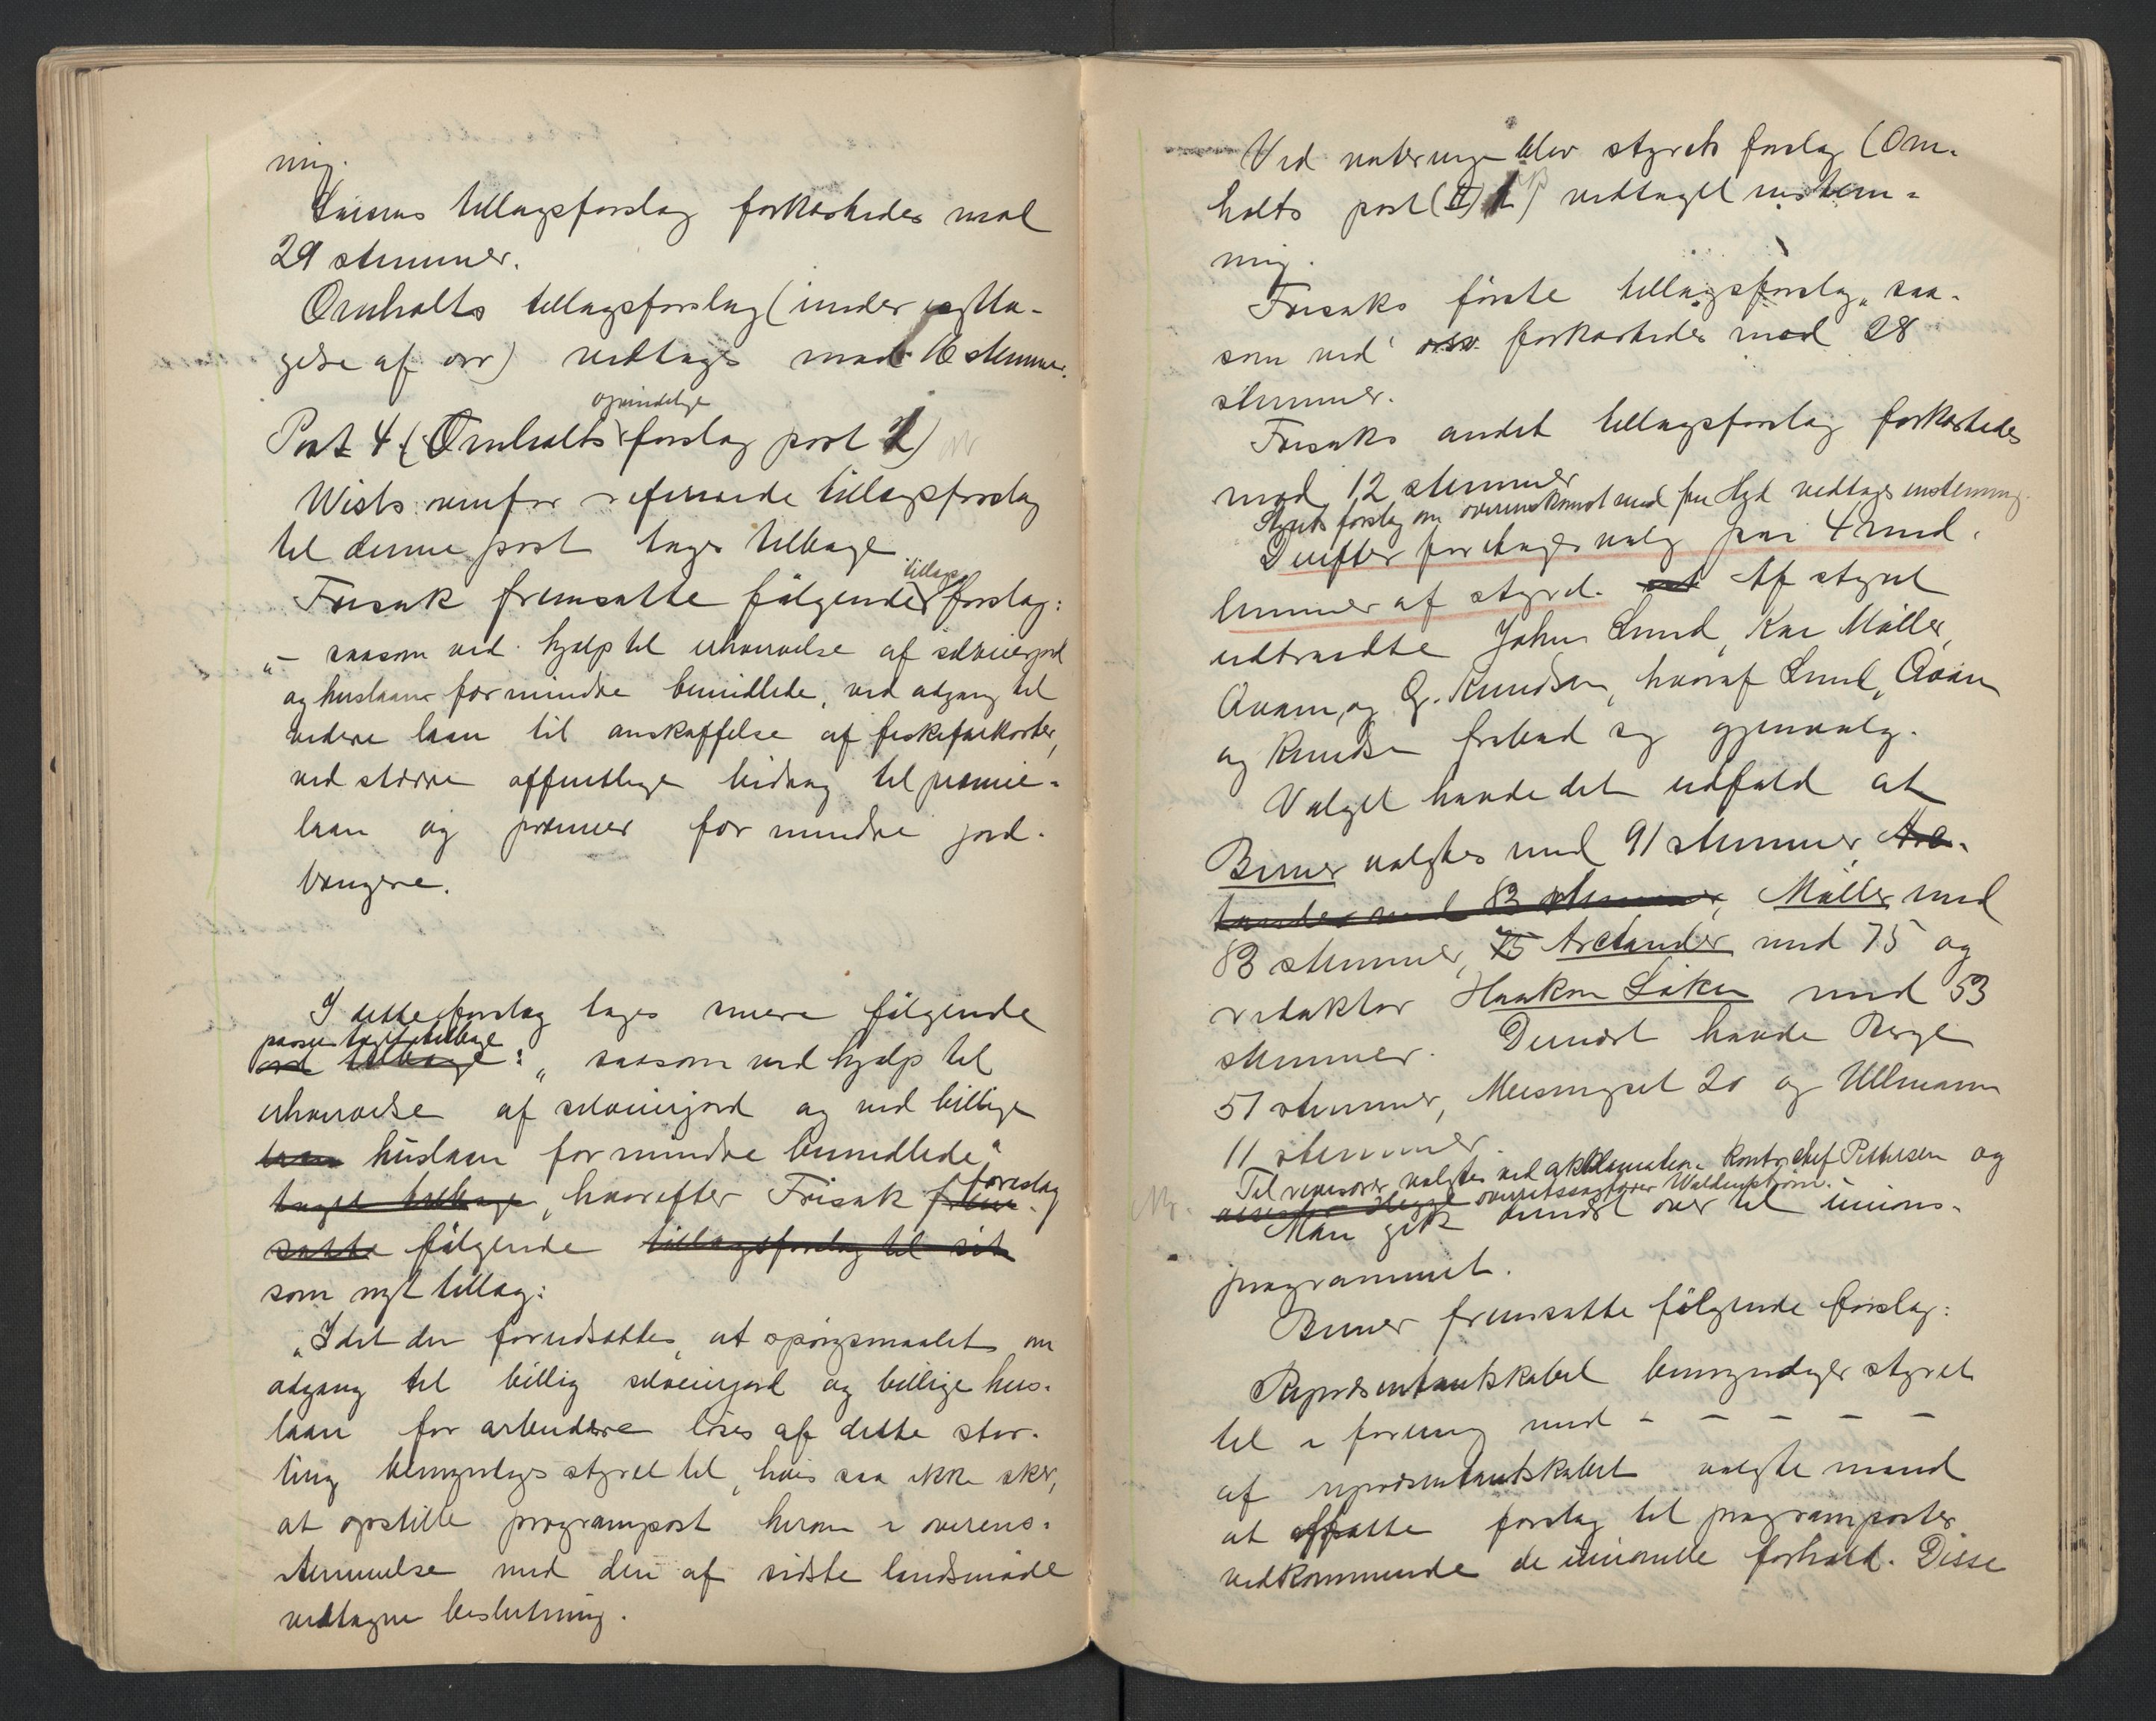 ning.
tillægsforslag forkastedes mod
29 stemmer.
Ornholts tillægsforslag (under iagtta-
gelse af osv) vedtages mod 16 stemmer.
oprindelige
Post 4 (Ornholts forslag post 1)
Wists ovenfor refererede tillægsforslag
til denne post tages tilbage.
tillægs
Frisak fremsatte følgende forslag:
„– saasom ved hjælp til erhvervelse af selveierjord
og huslaan for mindre bemidlede, ved adgang til
videre laan til anskaffelse af fiskefarkoster,
ved større offentlige bidrag til præmie-
laan og præmier for mindre jord-
brugere.
I dette forslag tages senere følgende
passus tagt tilbage
ord tilbage: „saasom ved hjælp til
erhvervelse af selveierjord og ved billige
laan huslaan for mindre bemidlede“
foreslog
taget tilbage, hvorefter Frisak frem-
satte følgende tillægsforslag til sit
som nyt tillæg:
„Idet der forudsættes, at spørgsmaalet om
adgang til billig selveierjord og billige hus-
laan for arbeidere løses af dette stor-
ting bemyndiges styret til, hvis saa ikke sker,
at opstille programpost herom i overens-
stemmelse med den af sidste landsmøde
vedtagne beslutning.
Ved voteringen blev styrets forslag (Orn-
holts post (I) 1) vedtaget enstem-
mig.
Frisaks første tillægsforslag „saa-
som ved“ osv. forkastedes mod 28
stemmer.
Frisaks andet tillægsforslag forkastedes
mod 12 stemmer
Styrets forslag om overenskomst med fru Hyd vedtages enstemmig.
Derefter foretages valg paa 4 med-
lemmer af styret. Af styret
udtraadte Johan Lund, Kar Møller,
Qvam og G. Knudsen, hvoraf Lund, Qvam
og Knudsen frabad sig gjenvalg.
Valget havde det udfald at
Berner valgtes med 91 stemmer, Arc-
tander med 83 stemmer, Møller med
83 stemmer, 75 Arctander med 75 og
redaktør Haakon Løken med 53
stemmer. Dernæst havde Berge
51 stemmer, Meisingset 20 og Ullmann
11 stemmer.
Til revisorer valgtes ved akklamation kontorchef Pettersen og
overretssagfører Waldenstrøm.
Man gik dernæst over til unions-
programmet.
Berner fremsatte følgende forslag:
Repræsentantskabet bemyndiger styret
til i forening med – – – – –
af repræsentantskabet valgte mænd
at affatte forslag til programposter
vedkommende de unionelle forhold. Disse